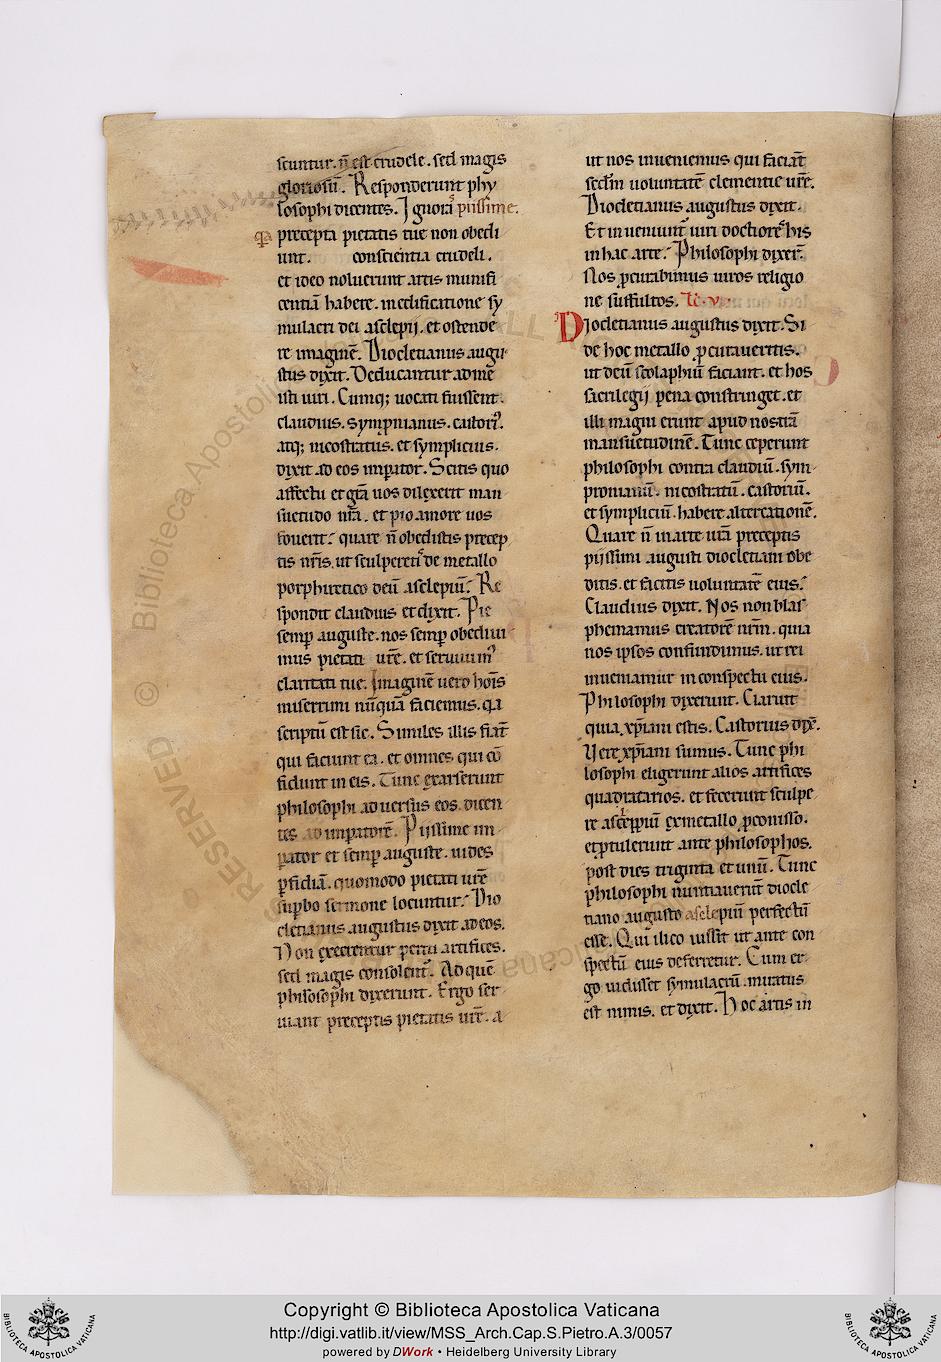 scuntur. n̄ est crudele. sed magis
gloriosū. Responderunt phy
losophi dicentes. Ignora piissime.
Qa precepta pietatis tue non obedi
unt. conscientia crudeli.
et ideo noluerunt artis munifi
centiā habere. in edificatione sy
mulacri dei asclepij. et ostende
re imaginē. Diocletianus augu
stus dixit. Deducantur ad mē
isti uiri. Cumq; uocati fuissent.
claudius. sympnianus. castori⁹.
atq; nicostratus. et symplicius.
dixit ad eos imperator. Scitis quo
affectu et gr̄a uos dilexerit man
suetudo nr̄a. et pio amore uos
fouerit. quare n̄ obedistis precep
tis nr̄is. ut sculperetis de metallo
porphiretico deū asclepiū. Re
spondit claudius et dixit. Pie
semp̄ auguste. nos semp̄ obediui
mus pietati ur̄e. et seruiuim⁹
claritati tue. Imaginē uero hoīs
miserrimi nūquā faciemus. qa
scriptū est sic. Similes illis fiāt
qui faciunt ea. et omnes qui cō
fidunt in eis. Tunc exarserunt
philosophi aduersus eos. dicen
tes ad imp̄atorē. Pijssime im
p̄ator et semp̄ auguste. uides
p̄fidiā. quomodo pietati ur̄e
sup̄bo sermone locuntur. Dio
cletianus augustus dixit ad eos.
Non execrentur periti artifices.
sed magis consolent̄. Ad quē
philosophi dixerunt. Ergo ser
uiant preceptis pietatis ur̄e. a
ut nos inueniemus qui faciāt
secd̄m uoluntatē clementie ur̄e.
Diocletianus augustus dixit.
Et inueniunt̄ uiri doctiores his
in hac arte. Philosophi dixer̄.
Nos p̄curabimus uiros religio
ne suffultos. Lc̄. v.
Diocletianus augustus dixit. Si
de hoc metallo p̄curaueritis.
ut deū scolaphiū faciant. et hos
sacrilegij pena constringet. et
illi magni erunt apud nostrā
mansuetudinē. Tunc ceperunt
philosophi contra claudiū. sym
pronianū. nicostratū. castoriū.
et sympliciū. habere altercationē.
Quare n̄ in arte ur̄a preceptis
pijssimi augusti diocletiani obe
ditis. et facitis uoluntatē eius.
Claudius dixit. Nos non blas
phemamus creatorē nr̄m. quia
nos ipsos confundimus. ut rei
inueniamur in conspectu eius.
Philosophi dixerunt. Claruit
quia xp̄iani estis. Castorius dix̄.
Vere xp̄iani sumus. Tunc phi
losophi eligerunt alios artifices
quadratarios. et fecerunt sculpe
re asceppiū ex metallo p̄conisso.
et p̄tulerunt ante philosophos.
post dies triginta et unū. Tunc
philosophi nuntiauerunt diocle
tiano augusto asclepiū perfectū
esse. Qui ilico iussit ut ante con
spectū eius deferretur. Cum er
go uidisset symulacrū. miratus
est nimis. et dixit. Hoc artis in
Copyright © Biblioteca Apostolica Vaticana
http://digi.vatlib.it/view/MSS_Arch.Cap.S.Pietro.A.3/0057
powered by DWork • Heidelberg University Library